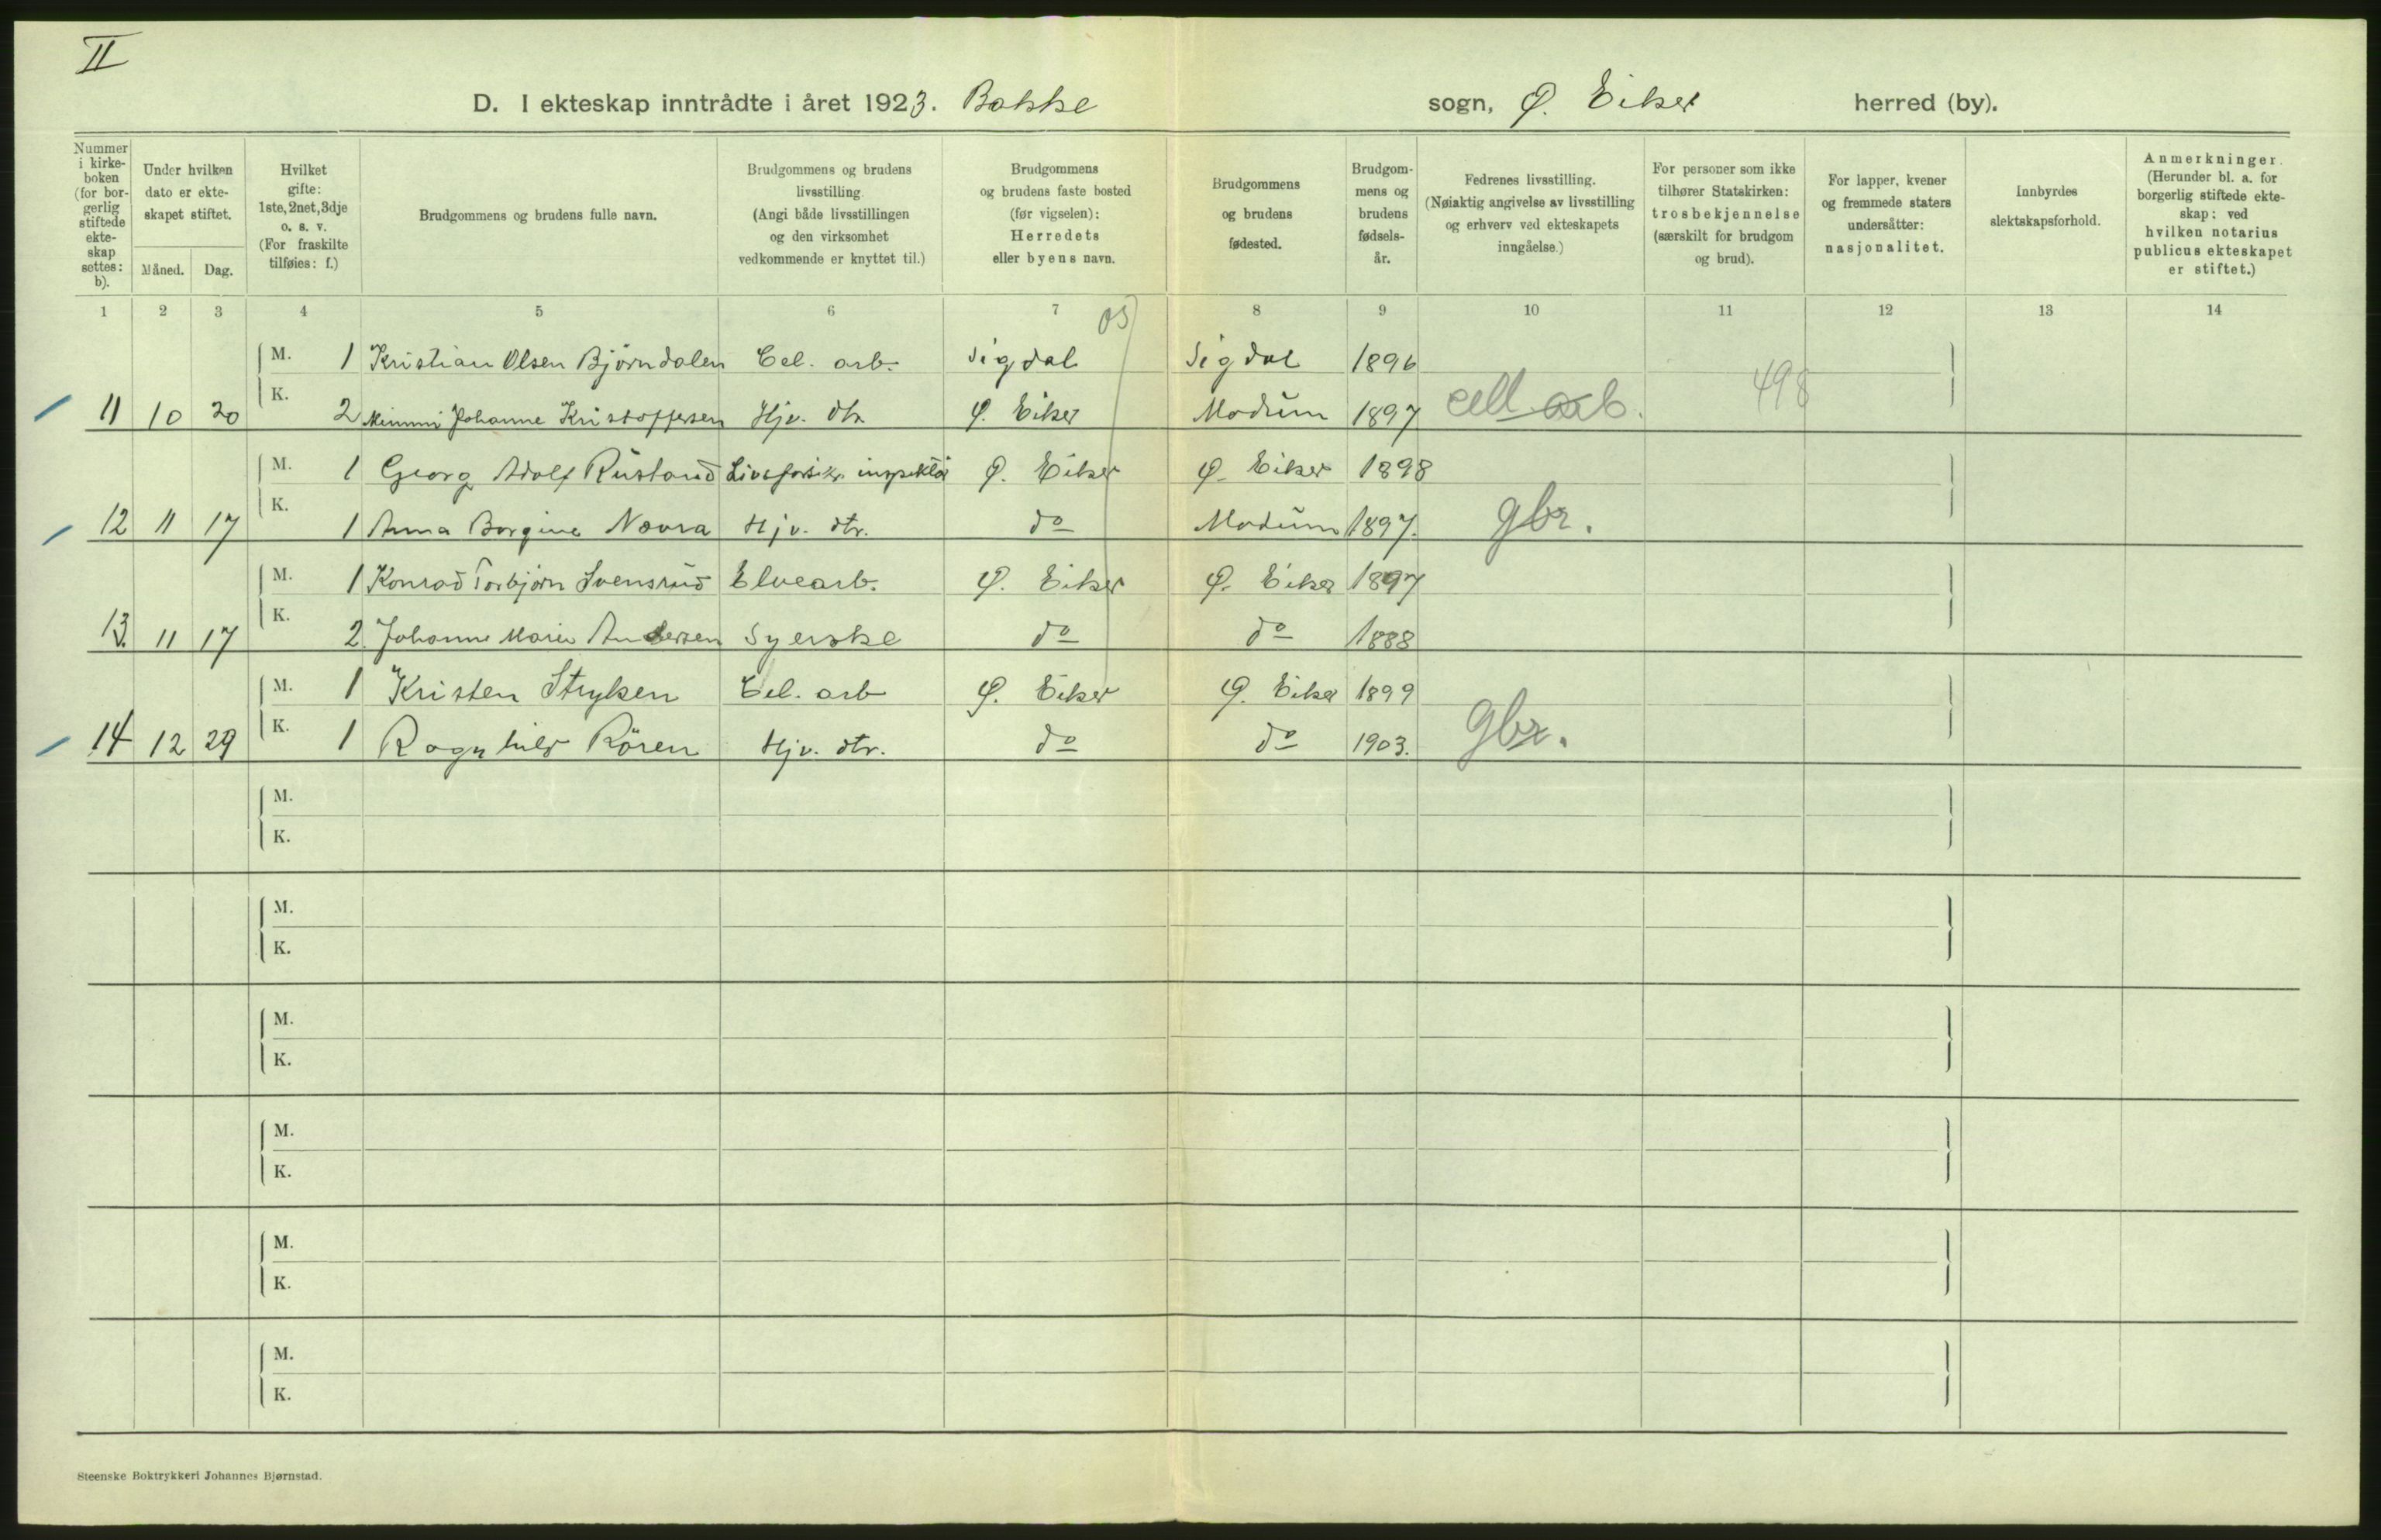 II
D. I ekteskap inntrådte i året 1923. Bakke sogn, Ø. Eiker herred (by).
Nummer i kirke- boken (for bor- gerlig stiftede ekte- skap settes: b).
Under hvilken dato er ekte- skapet stiftet.
Måned. Dag.
Hvilket gifte: 1ste, 2net, 3dje o. s. v. (For fraskilte tilføies: f.)
Brudgommens og brudens fulle navn.
Brudgommens og brudens livsstilling. (Angi både livsstillingen og den virksomhet vedkommende er knyttet til.)
Brudgommens og brudens faste bosted (før vigselen): Herredets eller byens navn.
Brudgommens og brudens fødested.
Brudgom- mens og brudens fødsels- år.
Fedrenes livsstilling. (Nøiaktig angivelse av livsstilling og erhverv ved ekteskapets inngåelse.)
For personer som ikke tilhører Statskirken: trosbekjennelse (særskilt for brudgom og brud).
For lapper, kvener og fremmede staters undersåtter: nasjonalitet.
Innbyrdes slektskapsforhold.
Anmerkninger. (Herunder bl. a. for borgerlig stiftede ekte- skap: ved hvilken notarius publicus ekteskapet er stiftet.)
1 2 3 4 5 6 7 8 9 10 11 12 13 14
M. 1 Kristian Olsen Björndalen Cel. arb. Sigdal Sigdal 1896
11 10 20 K. 2 Mimmi Johanne Kristoffersen Hjv. dtr. Ø. Eiker Modum 1897 cell arb. 498
M. 1 Georg Adolf Rustand Livsforsikr. inspektör Ø. Eiker Ø. Eiker 1898
12 11 17 K. 1 Anna Borgine Novra Hjv. dtr. do Modum 1897. gbr.
M. 1 Konrad Torbjörn Svensrud Elvearb. Ø. Eiker Ø. Eiker 1897
13. 11 17 K. 2 Johanne Marie Andersen Syerske do do 1888
M. 1 Kristen Stryken Cel. arb Ø. Eiker Ø. Eiker 1899
14 12 29 K. 1 Ragnhild Rören Hjv. dtr. do do 1903. gbr.
M.
K.
M.
K.
M.
K.
M.
K.
M.
K.
M.
K.
Steenske Boktrykkeri Johannes Bjørnstad.